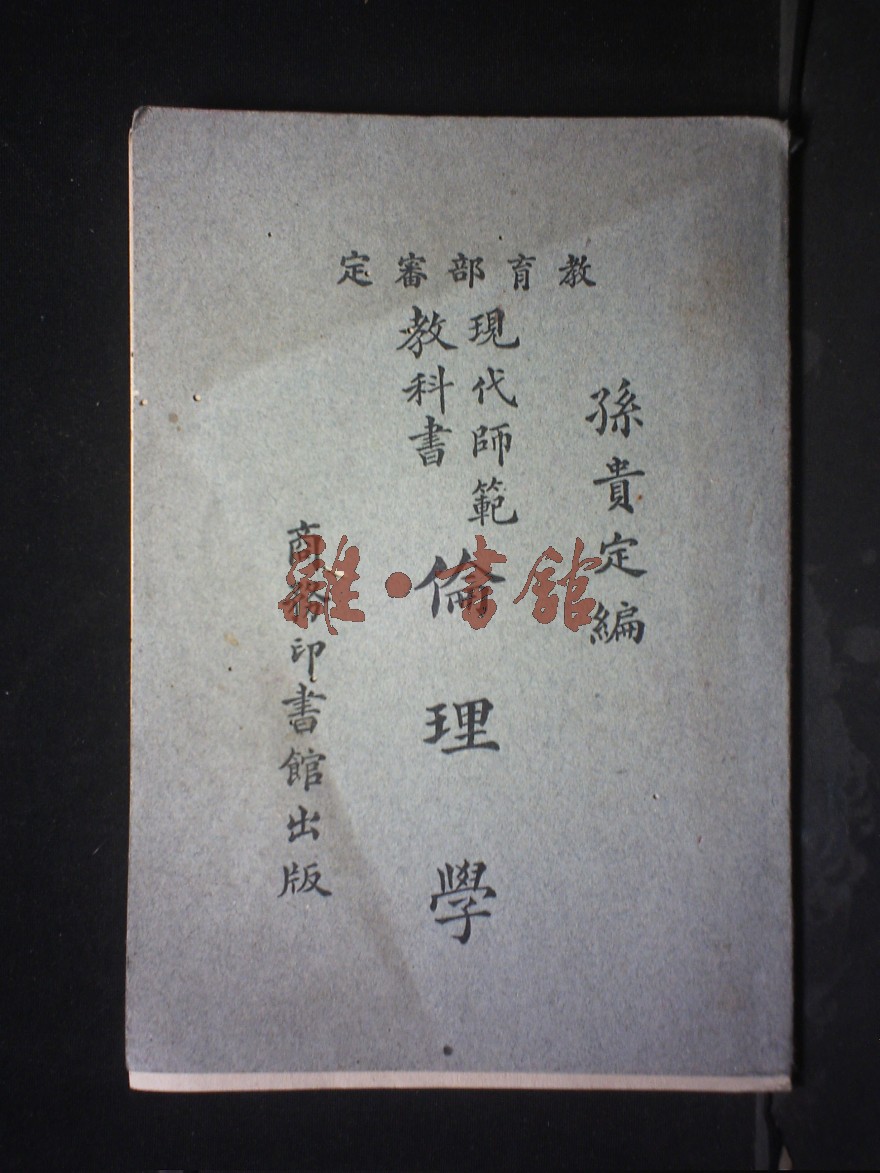 教育部審定
孫貴定編
現代師範
教科書
倫理學
商務印書館出版
雜·書館